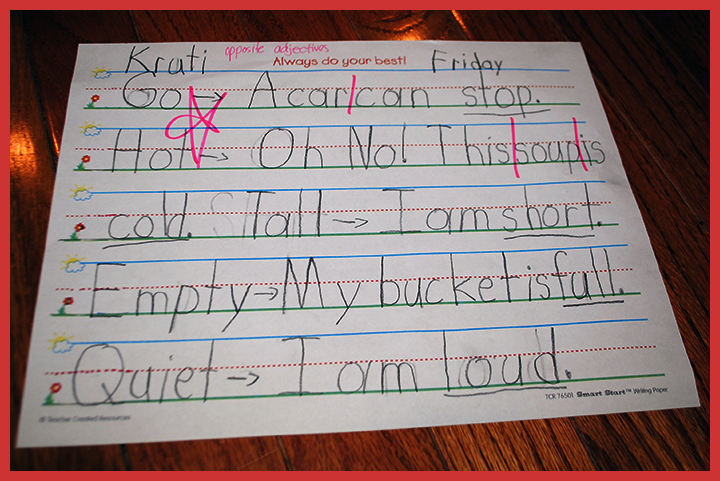 Krati opposite adjectives Always do your best! Friday
Go → A car|can stop.
Hot → Oh No! This|soup|is
cold. Tall → I am short.
Empty → My bucket is full.
Quiet → I am loud.
© Teacher Created Resources TCR 76501 Smart Start™ Writing Paper